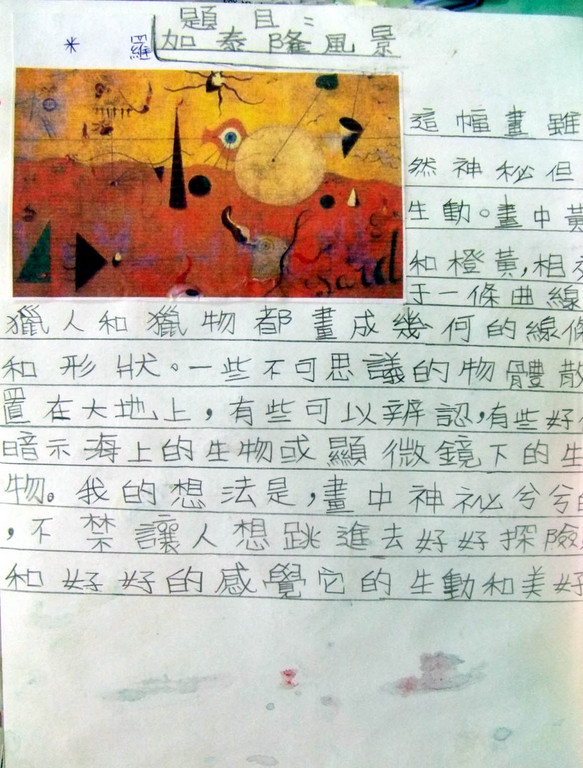 題目：
* 羅 加泰隆風景
這幅畫雖
然神秘但
生動。畫中黃
和橙黃，相
于一條曲線
獵人和獵物都畫成幾何的線條
和形狀。一些不可思議的物體散
置在大地上，有些可以辨認，有些好
暗示海上的生物或顯微鏡下的生
物。我的想法是，畫中神祕兮兮
，不禁讓人想跳進去好好探險
和好好的感覺它的生動和美好
sard